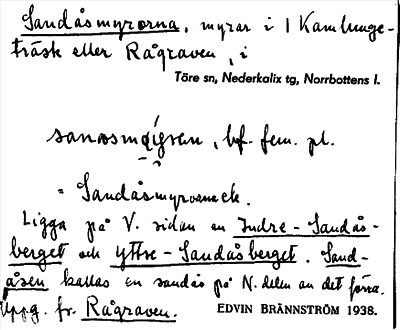 Sandåsmyrorna, myrar i I Kamlunge-
träsk eller Rågraven, i
Töre sn, Nederkalix tg, Norrbottens l.
bf. fem. pl.
= Sandåsmyrorna
Ligga på V. sidan en Indre-Sandås-
berget och Yttre-Sandåsberget. Sand-
åsen kallas en sandås på N. delen av det förra.
Uppg. fr. Rågraven. EDVIN BRÄNNSTRÖM 1938.